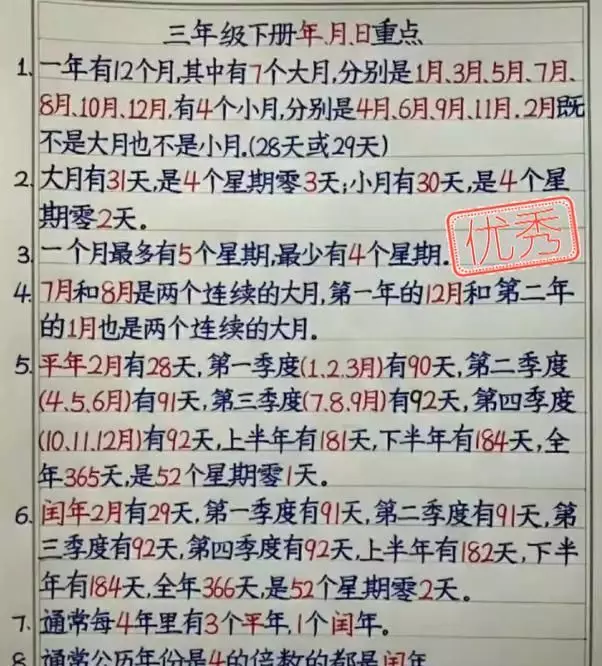 三年级下册年、月、日重点
1. 一年有12个月,其中有7个大月,分别是1月、3月、5月、7月、
8月、10月、12月,有4个小月,分别是4月、6月、9月、11月.2月既
不是大月也不是小月.(28天或29天)
2. 大月有31天,是4个星期零3天;小月有30天,是4个星
期零2天。
3. 一个月最多有5个星期,最少有4个星期.
优秀
4. 7月和8月是两个连续的大月,第一年的12月和第二年
的1月也是两个连续的大月。
5. 平年2月有28天,第一季度(1.2.3月)有90天,第二季度
(4.5.6月)有91天,第三季度(7.8.9月)有92天,第四季度
(10.11.12月)有92天,上半年有181天,下半年有184天,全
年365天,是52个星期零1天。
6. 闰年2月有29天,第一季度有91天,第二季度有91天,第
三季度有92天,第四季度有92天,上半年有182天,下半
年有184天,全年366天,是52个星期零2天。
7. 通常每4年里有3个平年,1个闰年。
8. 通常公历年份是4的倍数的都是闰年